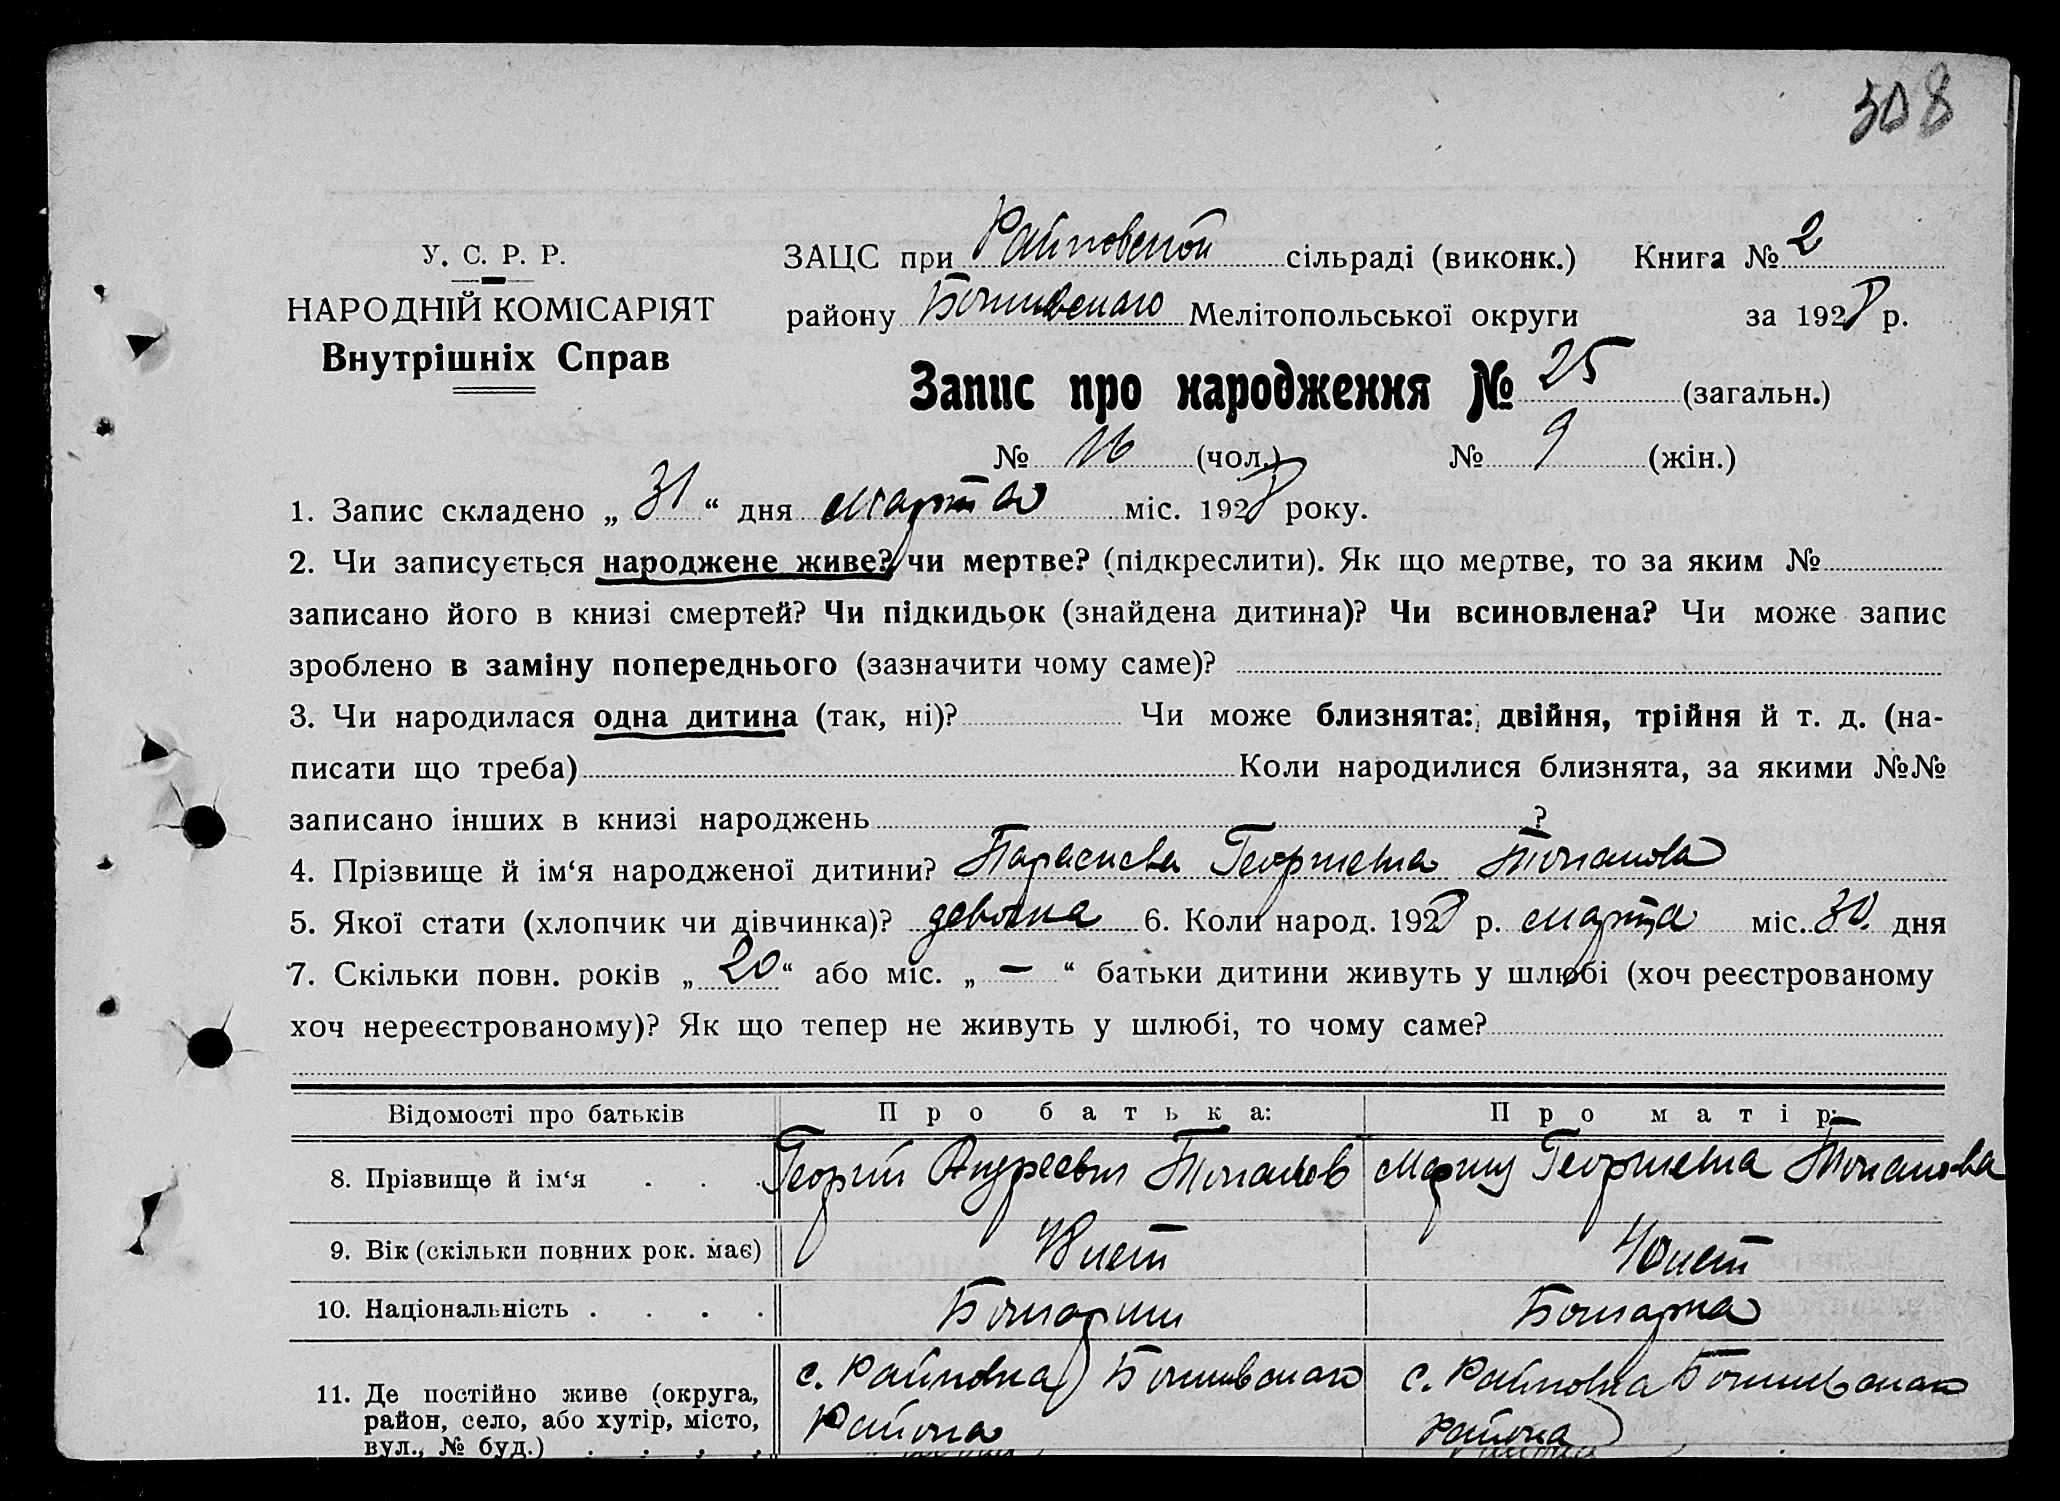 308
У. С. Р. Р.
НАРОДНІЙ КОМІСАРІЯТ
Внутрішніх Справ
ЗАЦС при Райновской сільраді (виконк.) Книга № 2
району Мелітопольської округи за 1928 р.
Запис про народження № 25 (загальн.)
№ 16 (чол.) № 9 (жін.)
1. Запис складено „ 31 “ дня марта міс. 1928 року.
2. Чи записується народжене живе? чи мертве? (підкреслити). Як що мертве, то за яким №
записано його в книзі смертей? Чи підкидьок (знайдена дитина)? Чи всиновлена? Чи може запис
зроблено в заміну попереднього (зазначити чому саме)?
3. Чи народилася одна дитина (так, ні)? Чи може близнята: двійня, трійня й т. д. (на-
писати що треба) Коли народилися близнята, за якими №№
записано інших в книзі народжень ?
4. Прізвище й ім‘я народженої дитини? Параскева Георгиевна
5. Якої стати (хлопчик чи дівчинка)? девочка 6. Коли народ. 1928 р. марта міс. 30 дня
7. Скільки повн. років „ 20 “ або міс. „ — “ батьки дитини живуть у шлюбі (хоч реєстрованому
хоч нереєстрованому)? Як що тепер не живуть у шлюбі, то чому саме?
Відомості про батьків Про батька: Про матір:
8. Прізвище й ім‘я . . . Георгий Андреевич Георгиевна
9. Вік (скільки повних рок. має) 48 лет 40 лет
10. Національність . . . . Болгарин Болгарка
11. Де постійно живе (округа,
район, село, або хутір, місто,
вул., № буд.) . . . .
с. Райновка
Района
с. Райновка
района